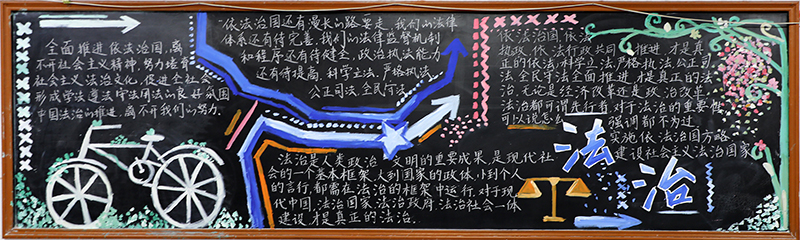 全面推进依法治国,离
不开社会主义精神,努力培育
社会主义法治文化,促进全社会
形成学法遵法守法用法的良好氛围
中国法治的推进,离不开我们的努力.
依法治国还有漫长的路要走,我们的法律
体系还有待完善,我们的法律监督机制
和程序还有待健全,政治执法能力
还有待提高,科学立法,严格执法,
公正司法 全民守法
依法治国、依法
执政、依法行政共同 推进 才是真
正的依法,科学立法,严格执法,公正司
法 全民守法全面推进 才是真正的法
治,无论是经济改革还是政治改革,
法治都可谓先行者 对于法治的重要性
可以说怎么 强调都不为过
实施依法治国方略
建设社会主义法治国家
法治是人类政治 文明的重要成果,是现代社
会的一个基本框架,大到国家的政体,小到个人
的言行,都需在法治的框架中运行,对于现
代中国,法治国家、法治政府,法治社会一体
建设,才是真正的法治.
法
治